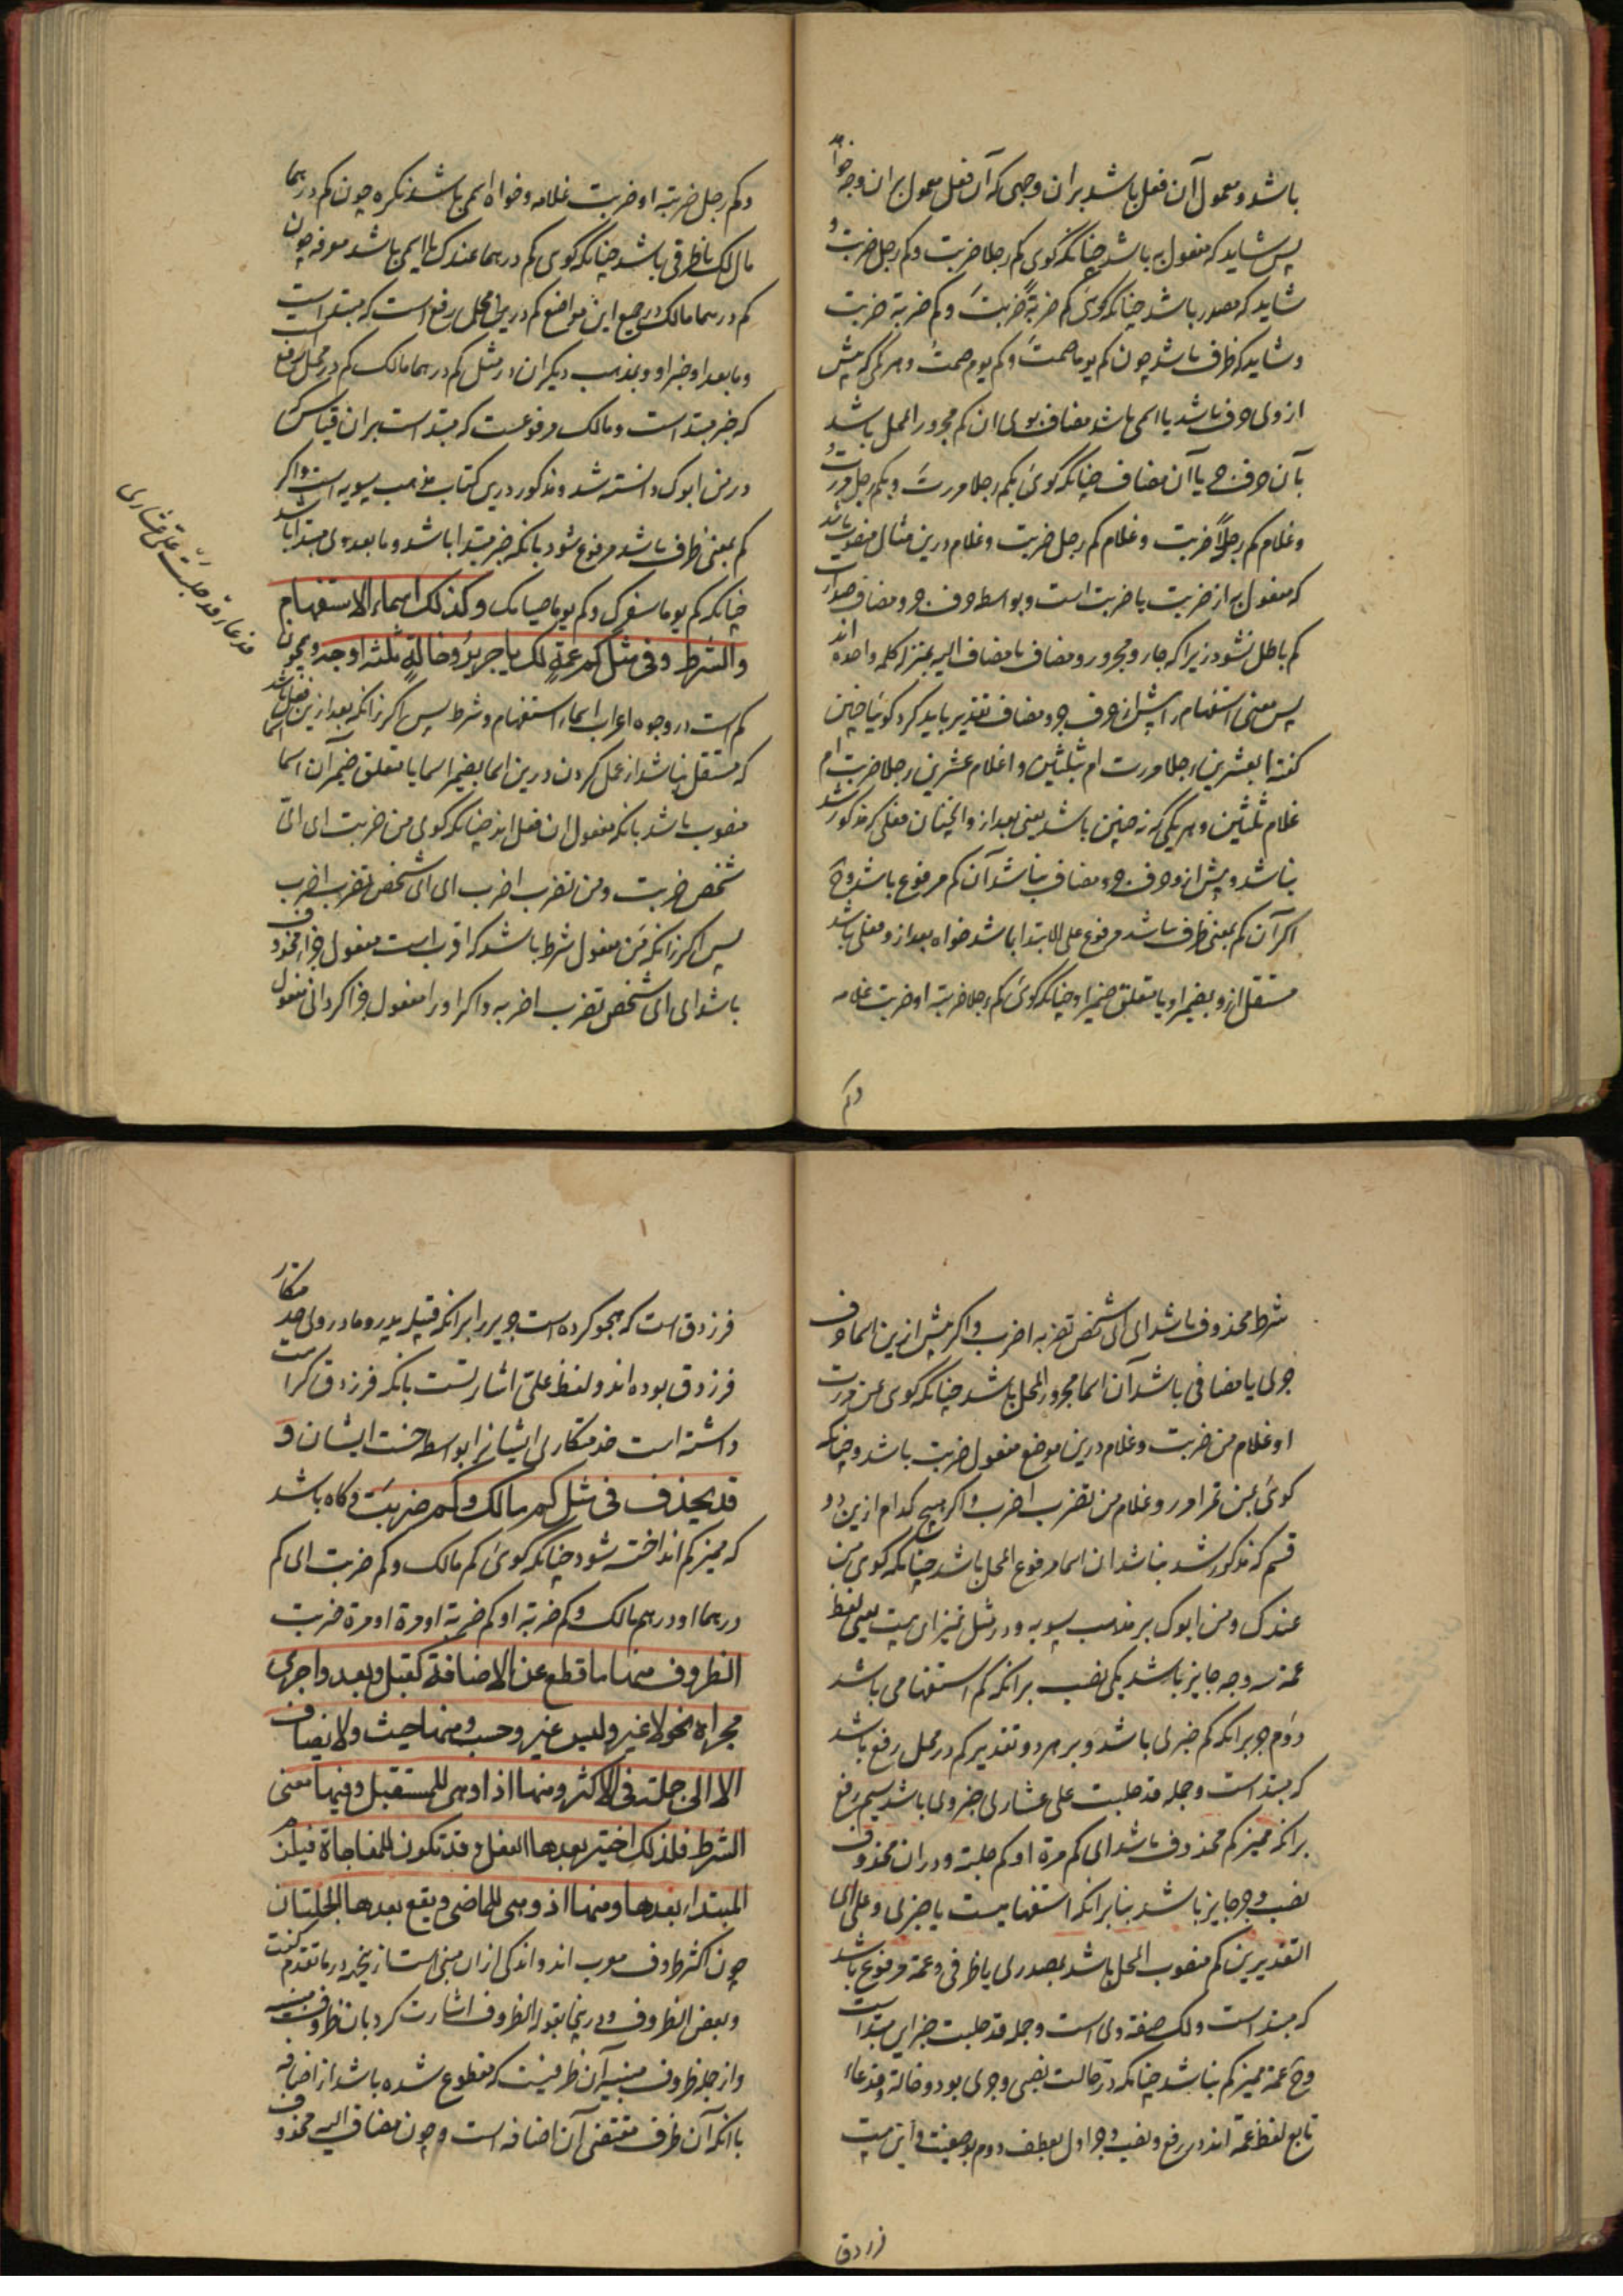 باشد و معمول آن فعل باشد بران وجهی که آن فعل معمول بران وجه خواهد
پس شاید که مفعول به باشد چنانکه گوی کم رجلا ضربت وکم رجل ضربت و
شاید که مصدر باشد چنانکه گوئ کم ضربةً ضربتَ وکم ضربة ضربت
و شاید که ظرف باشد چون کم یوما صمتَ وکم یوم صمتُ و هر کمی که پیش
از وی حرف باشد یا اسمی باشد مضاف بوی ان کم مجرور المحل باشد
بآن حرف جر یا آن مضاف چنانکه گوئ بکم رجلا مررتَ و بکم رجل مررتُ و
و غلام کم رجلاً ضربت و غلام کم رجل ضربت و غلام درین مثال منصوب باشد
که مفعول به از ضربت یا ضربت است و بواسطه حرف جر و مضاف صدارت
کم باطل نشود زیرا که جار و مجرور و مضاف با مضاف الیه بمنزله کلمه واحده اند
پس معنی استفهام را پیش از حرف جر و مضاف تقدیر باید کرد گوئیا چنین
گفته ابعشرین رجلا مررت ام بثلثین و اغلام عشرین رجلا ضربت ام
غلام ثلثین و هر یکی که نه چنین باشد یعنی بعد از و انچنان فعلی که مذکور شد
نباشد و پیش از و حرف جر و مضاف نباشد آن کم مرفوع باشد وح
اکر آن کم بمعنی ظرف نباشد مرفوع علی الابتدا باشد خواه بعد از و فعلی باشد
مستقل از و بضمیر او یا متعلق ضمیر او چنانکه گوئ کم رجلا ضربته او ضربت غلامه
وکم
وکم رجل ضربته او ضربت غلامه و خواه اسمی باشد نکره چون کم درهما
مال لک یا ظرفی باشد چنانکه گوی کم درهما عندک یا اسمی باشد معرفه چون
کم درهما مالک در جمیع این مواضع کم درین محل رفع است که مبتداست
و مابعد او خبر او و بمذهب دیکران در مثل کم درهما مالک کم در محل رفع است
که خبر مبتداست و مالک مرفوعست که مبتداست بران قیاس که
در من ابوک دانسته شد و مذکور درین کتاب مذهب سیبویه است و اکر
کم بمعنی ظرف باشد مرفوع شود بانکه خبر مبتدا باشد و ما بعد وی مبتدا باشد
چنانکه کم یوما سفرک وکم یوما صیامک وکذلک اسماء الاستفهام
والشرط وفی مثل کم عمةٍ لک یا جریر وخالةٍ ثلثه اوجه و همچون
کم ست در وجوه اعراب اسماء استفهام و شرط پس اکر زانکه بعد ازین اسما فعلی باشد
که مستقل نباشد از عمل کردن درین اسما بضمیر اسما یا متعلق ضمیر آن اسما
منصوب باشد بانکه مفعول ان فعل اند چنانکه گوی من ضربت ای ایّ
شخص ضربت و من تضرب اضرب ای ای شخص تضرب اضرب
پس اکر زانکه من مفعول شرط باشد که اقرب است مفعول جزا محذوف
باشد ای ای شخص تضرب اضربه و اکر او را مفعول جزا کردانی مفعول
فدعاء قد حلبت علیّ عشاری
شرط محذوف باشد ای ای شخص تضربه اضرب و اکر پیش ازین اسما حرف
جری یا مضافی باشد آن اسما مجرور المحل باشد چنانکه گوی عن مررت
او غلام من ضربت و غلام درین موضع مفعول ضربت باشد و چنانکه
گوئ بمن تمرر امرر و غلام من تضرب اضرب و اکر هیچ کدام ازین دو
قسم که مذکور شد نباشد ان اسما مرفوع المحل باشد چنانکه گوی من
عندک و من ابوک بر مذهب سیبویه و در مثل تمیز این بیت یعنی لفظ
عمة سه وجه جایز باشد یکی نصب برانکه کم استفهامی باشد
دوم جر برانکه کم خبری باشد و بر هر دو تقدیر کم در محل رفع باشد
که مبتداست و جمله قد حلبت علی عشاری خبر وی باشد سیم رفع
برانکه ممیز کم محذوف باشد ای کم مرة او کم حلبة و در ان محذوف
نصب و جر جایز باشد بنا برانکه استفهامیست یا خبری و علی ای
التقدیرین کم منصوب المحل باشد بمصدری یا ظرفی و عمة مرفوع باشد
که مبتداست و لک صفة وی است و جمله قد حلبت خبر این مبتداست
وح عمة ممیز کم نباشد چنانکه در حالت نصبی و جری بود و خالة و فدعاء
تابع لفظ عمة اند در رفع و نصب و جر اول بعطف دوم بوصفیت و این بیت
فرزدق
فرزدق است که هجو کرده است جریر را برانکه قبیله پدر و مادر وی خدمتکار
فرزدق بوده اند و لفظ علیّ اشارتست بانکه فرزدق کراهت
داشته است خدمتکاری ایشانرا بواسطه خست ایشان و
قد یحذف فی مثل کم مالک وکم ضربت و کاه باشد
که ممیز کم انداخته شود چنانکه گوئ کم مالک وکم ضربت ای کم
درهما او درهم مالک وکم ضربة او کم ضربة او مرة او مرة ضربت
الظروف منها ما قطع عن الاضافة کقبل وبعد واجری
مجراه نحو لا غیر ولیس غیر وحسب ومنها حیث ولا یضاف
الا الی جملة فی الاکثر ومنها اذا وهی للمستقبل وفیها معنی
الشرط فلذلک اختیر بعدها الفعل وقد تکون للمفاجاة فیلزم
المبتداء بعدها ومنها اذ وهی للماضی ویقع بعدها الجملتان
چون اکثر ظروف معرب اند و اندکی ازان مبنی است از پنجه در ما تقدم کفت
و بعض الظروف و درینجا بقوله الظروف اشارت کرد بان ظروف مبنیه
و از جمله ظروف مبنیه آن ظرفیست که مقطوع شده باشد از اضافه
با انکه آن ظرف مقتضی آن اضافه است و چون مضاف الیه محذوف